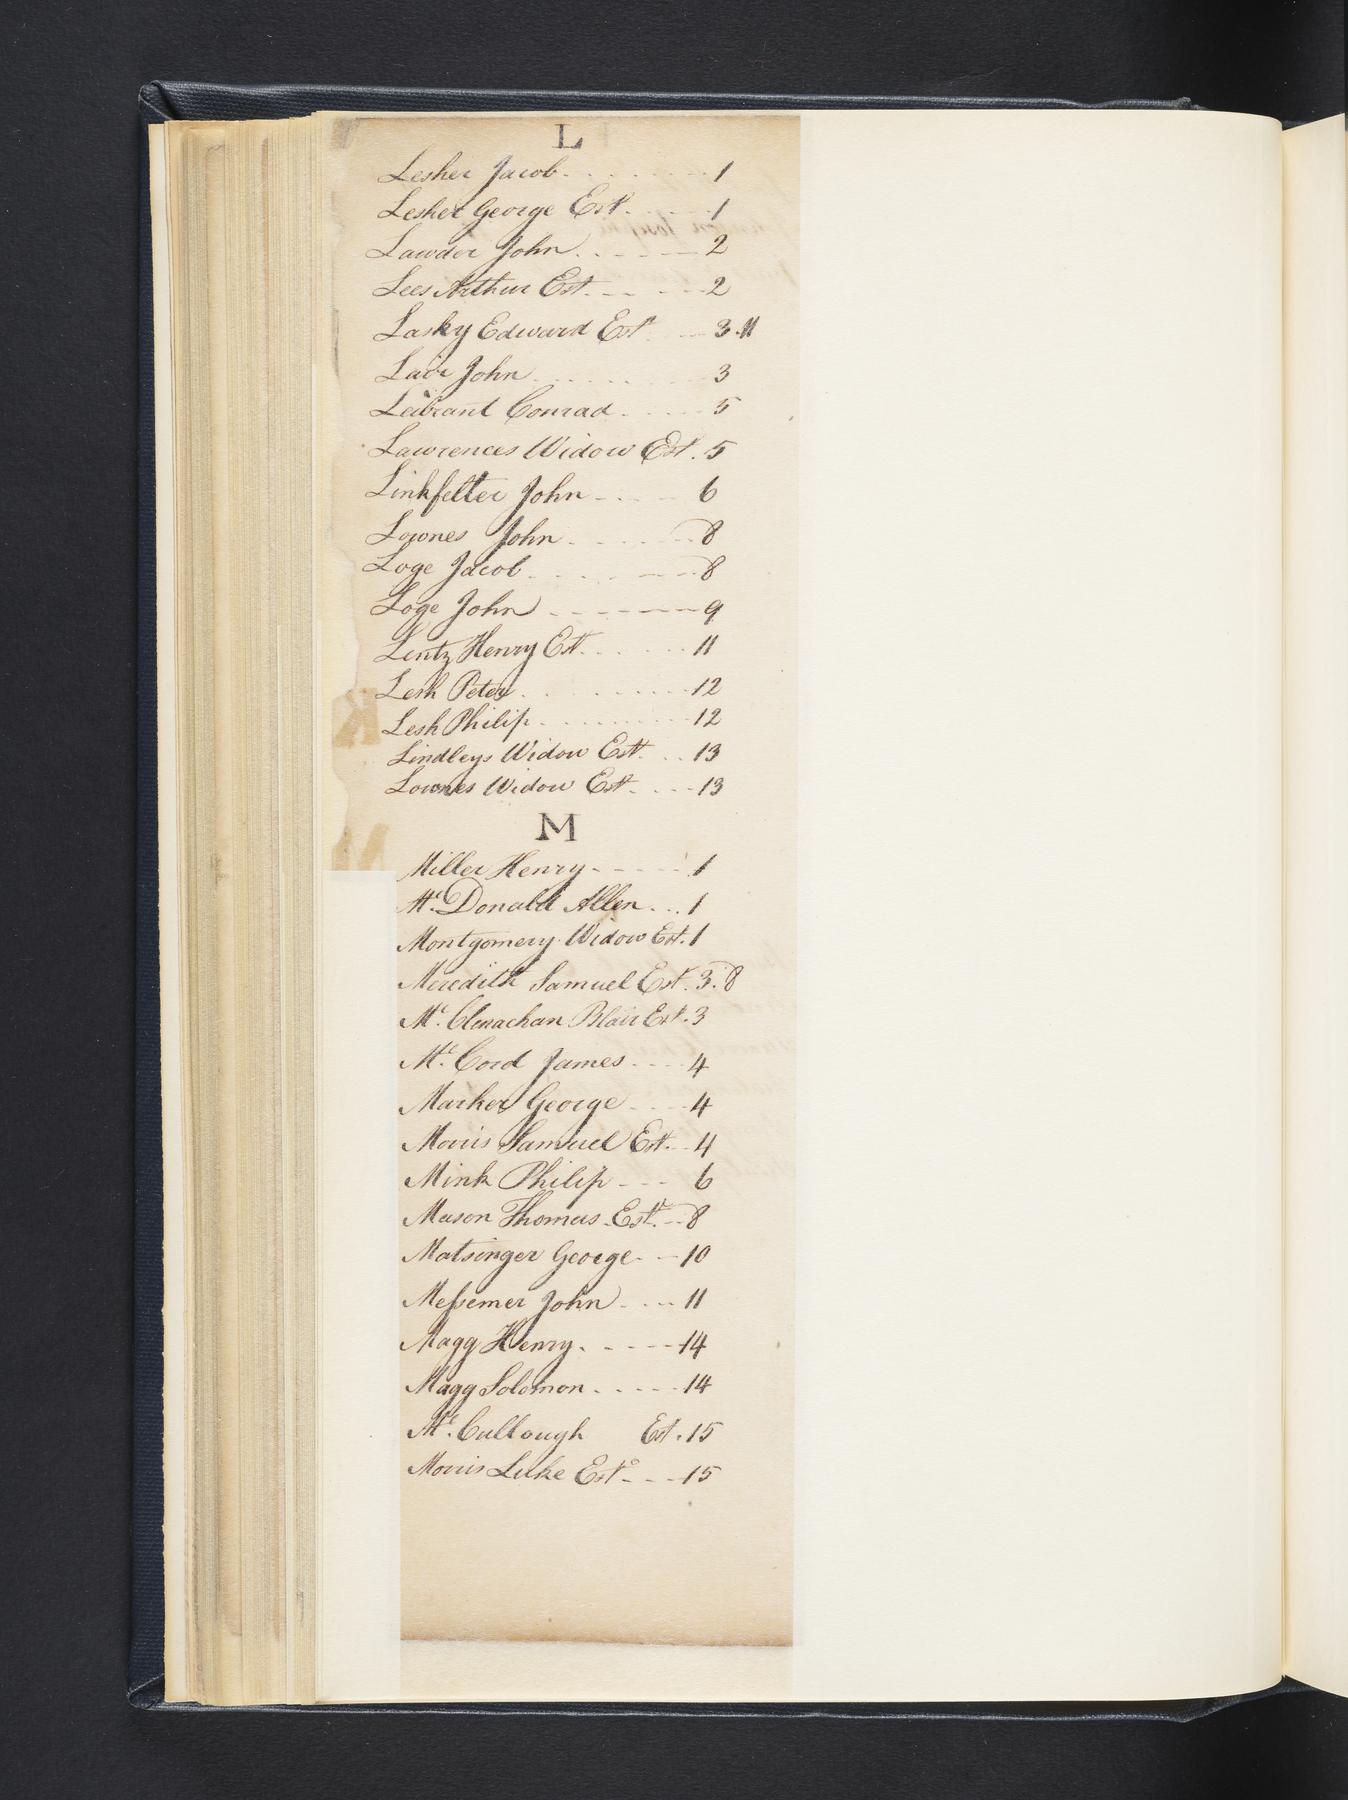 L
Lesher Jacob - - - - - - - 1
Lesher George Est. - - - 1
Lawder John - - - - - 2
Lees Arthur Est. - - - - 2
Lasky Edward Est. - - 3. 11
Lair John - - - - - - - 3
Leibrant Conrad - - - - 5
Lawrences Widow Est. 5
Linkfelter John - - - - 6
Lownes John - - - - - 8
Loge Jacob - - - - - - 8
Loge John - - - - - - 9
Lentz Henry Est. - - - - 11
Lesh Peter - - - - - - - 12
Lesh Philip - - - - - - - 12
Lindleys Widow Est. - - 13
Lownes Widow Est. - - - 13
K
M
M
Miller Henry - - - - - 1
Mc. Donald Allen - - - 1
Montgomery Widow Est. 1
Meredith Samuel Est. 3. 8
Mc. Clenachan Blair Est. 3
Mc. Cord James - - - - 4
Marker George - - - - 4
Morris Samuel Est. - - 4
Mink Philip - - - 6
Mason Thomas Est. - - 8
Matsinger George - - - 10
Messemer John - - - - 11
Magg Henry - - - - - 14
Magg Solomon - - - - - 14
Mc. Cullough Est. 15
Morris Luke Este - - - 15